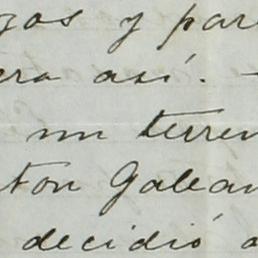 y par
era así. -
un terren
ton Galean
decidió a